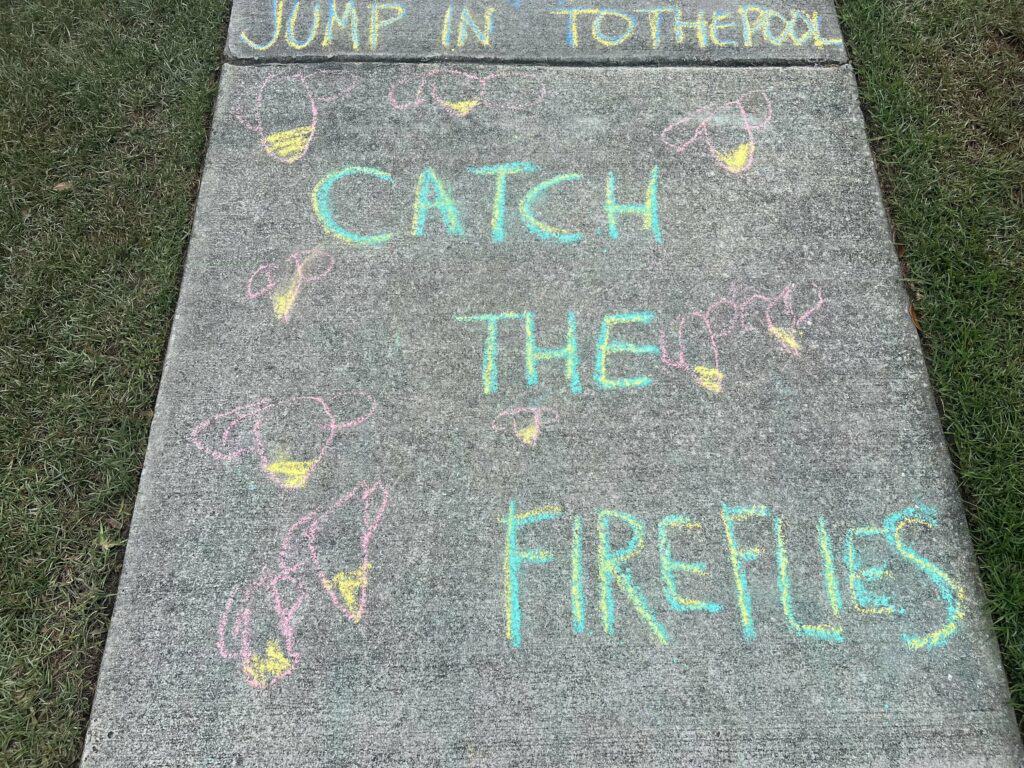 JUMP IN TOTHEPOOL
CATCH
THE
FIREFLIES